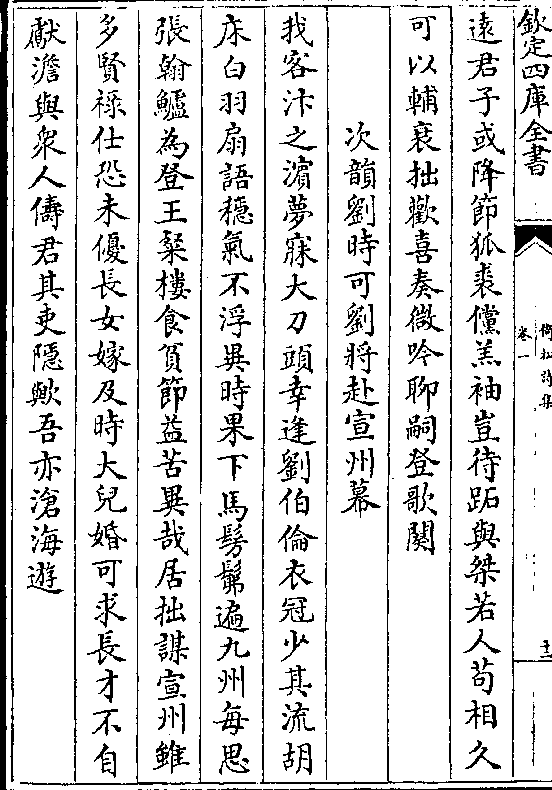 欽定四庫全書
倚松詩集
卷一
十三
遠君子或降節狐裘儻羔袖豈待跖與桀若人苟相久
可以輔衰拙歡喜奏微吟聊嗣登歌闋
次韻劉時可劉將赴宣州幕
我客汴之濵夢寐大刀頭幸逢劉伯倫衣冠少其流胡
床白羽扇語穏氣不浮異時果下馬髣髴遍九州每思
張翰鱸為登王粲樓食貧節益苦異哉居拙謀宣州雖
多賢祿仕恐未優長女嫁及時大兒婚可求長才不自
獻澹與衆人儔君其吏隠歟吾亦滄海遊